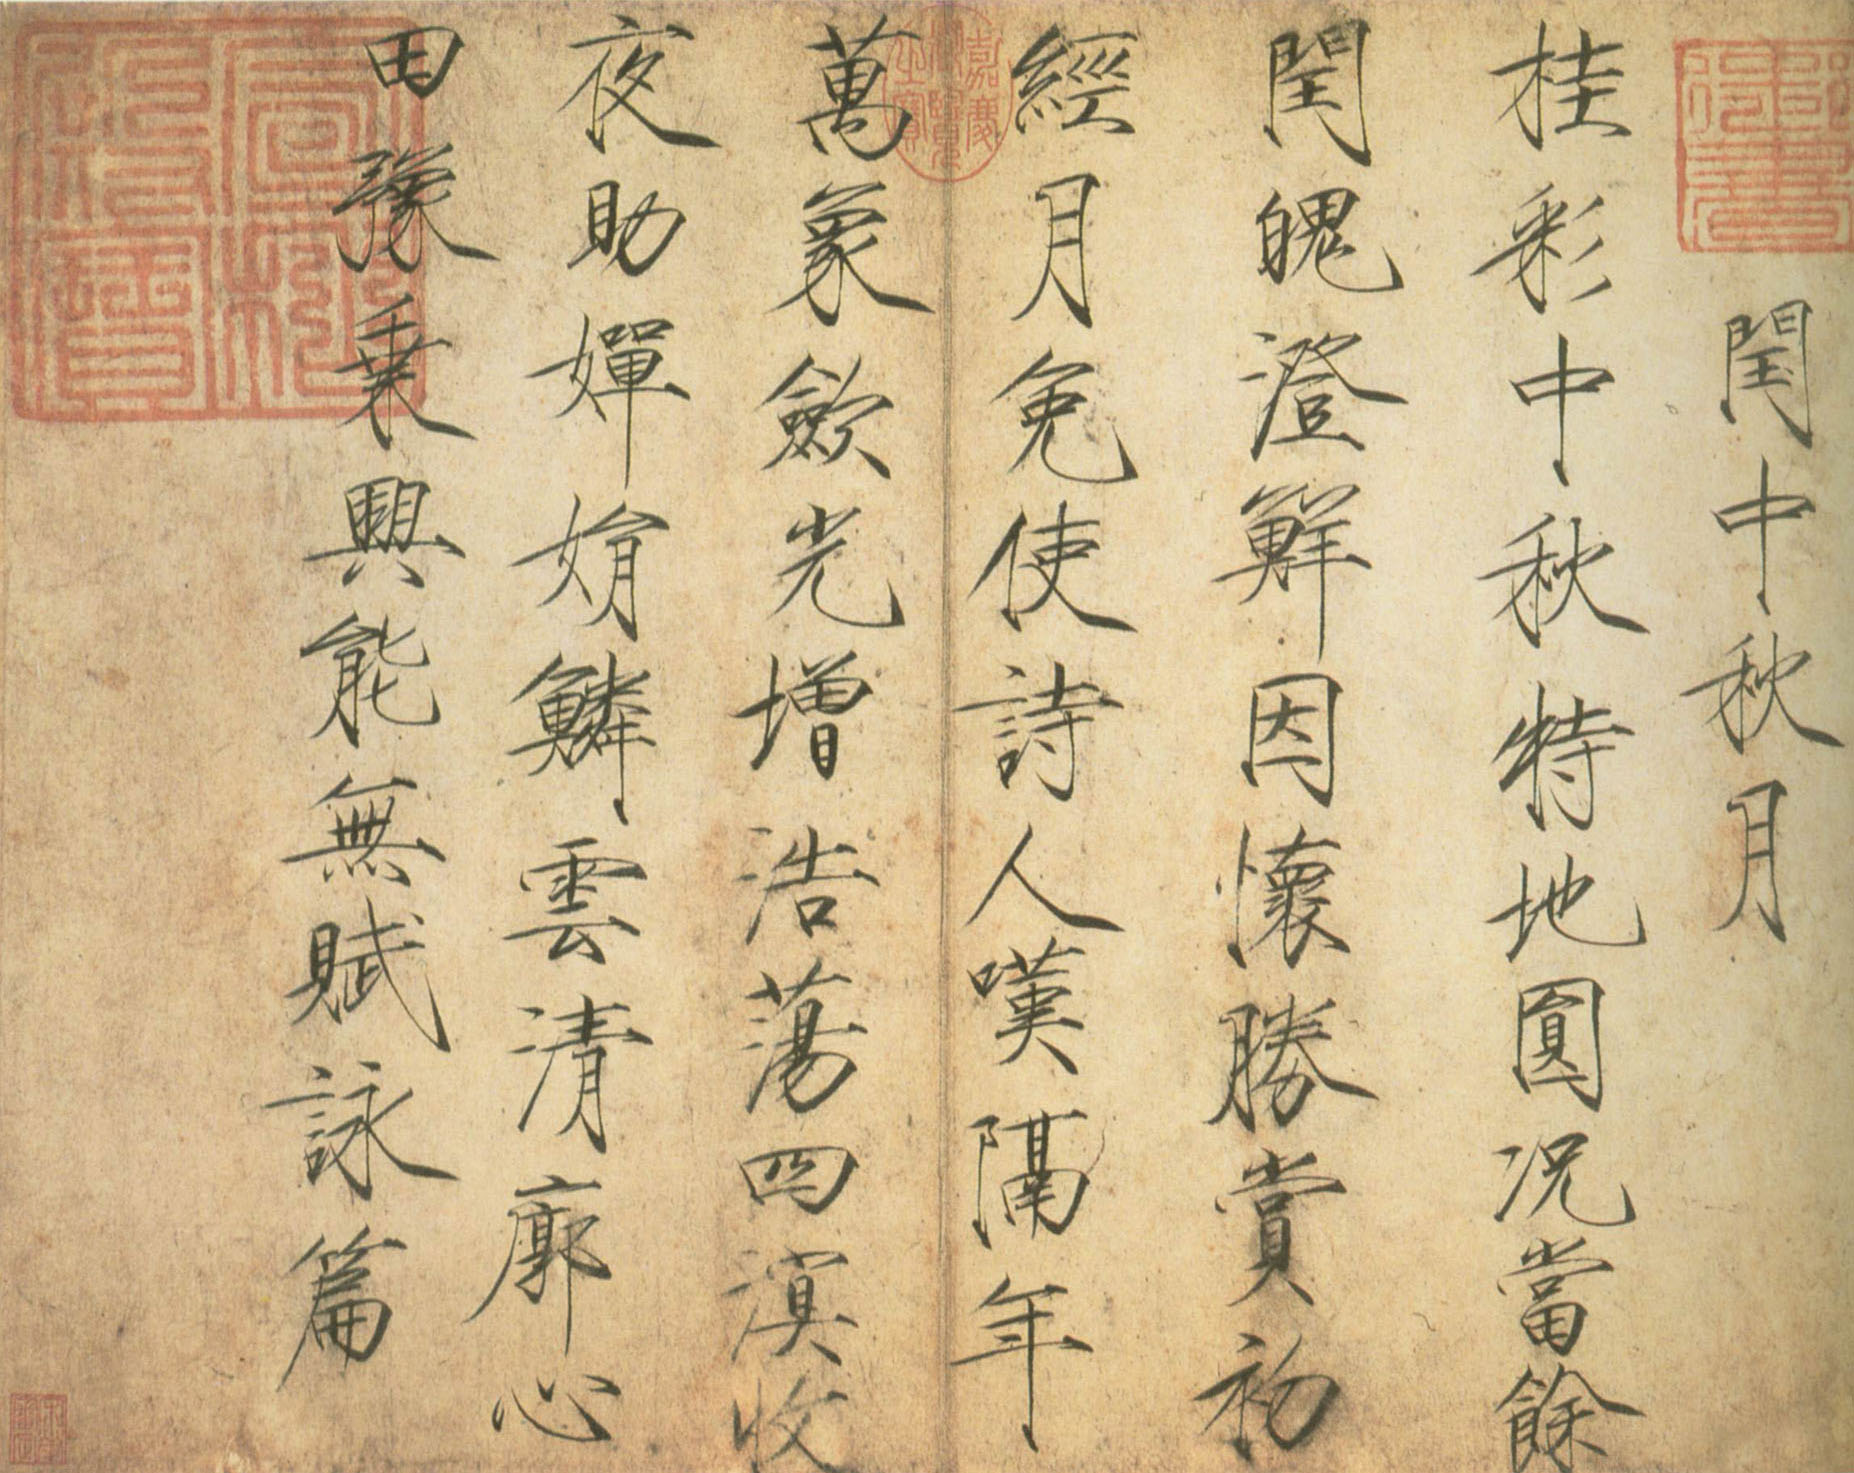 閏中秋月
桂彩中秋特地圓况當餘
閏魄澄鮮因懷勝賞初
經月免使詩人嘆隔年
萬象斂光增浩蕩四溟收
夜助嬋娟鱗雲清廓心
田豫乗興能無賦詠篇